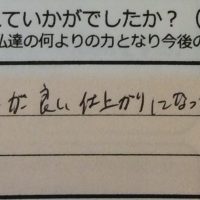 ていかがでしたか?（
私達の何よりの力となり今後の
が良い仕上がりになっ